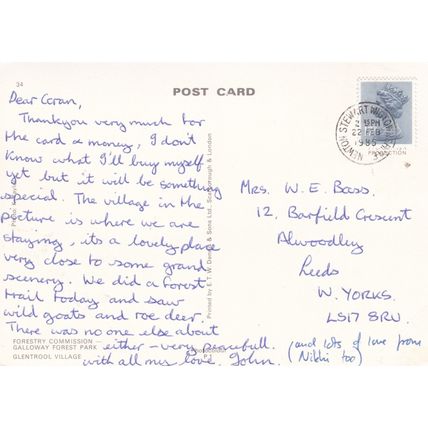 34
POST CARD
Dear Goran,
Thankyou very much for
the card & money, I don't
know what I'll buy myself
yet but it will be something
special. The village in the
picture is where we are
staying, its a lovely place
very close to some grand
scenery. We did a forest
trail today and saw
wild goats and roe deer.
There was no one else about
either - very peacefull.
with all my love, John.
(and lots of love from
Nikki too)
FORESTRY COMMISSION —
GALLOWAY FOREST PARK
GLENTROOL VILLAGE
Printed by E. T. W. Dennis & Sons Ltd., Scarborough & London
NEWTON STEWART WIGTOWNSHIRE
2 15PM
22 FEB
1985
Mrs. W. E. Bass.
12, Barfield Crescent
Alwoodley
Leeds
W. YORKS.
LS17 8RU.